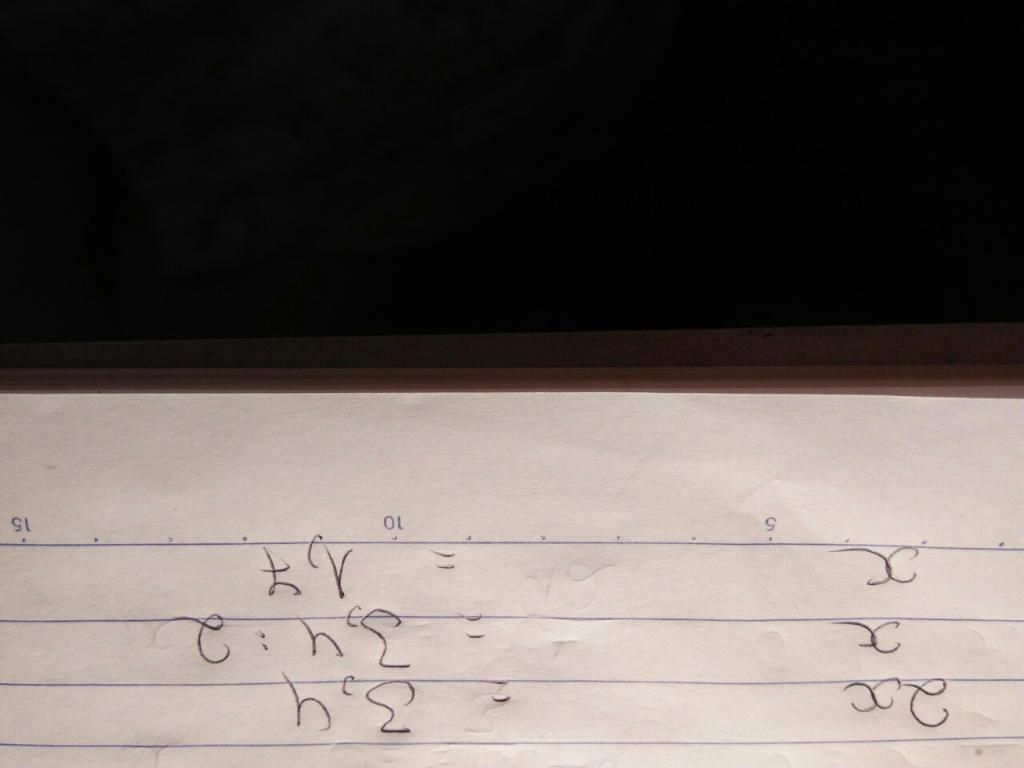 2x = 3,4
x = 3,4 : 2
x = 1,7
5 10 15